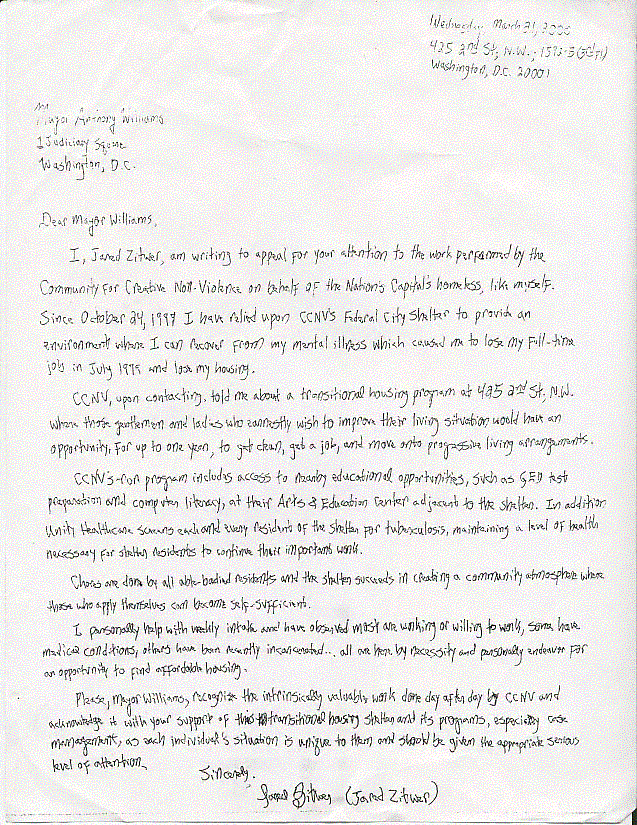 Wednesday, March 21, 2000
425 2nd St, N.W.;
Washington, D.C. 20001
Mayor Anthony Williams
1 Judiciary Square
Washington, D.C.
Dear Mayor Williams,
I, Jared Zitwer, am writing to appeal for your attention to the work performed by the
Community for Creative Non-Violence on behalf of the Nation's Capital's homeless, like myself.
Since October 24, 1997 I have relied upon CCNV's Federal City Shelter to provide an
environment where I can recover from my mental illness which caused me to lose my full-time
job in July 1999 and lose my housing.
CCNV, upon contacting, told me about a transitional housing program at 425 2nd St, N.W.
where those gentlemen and ladies who earnestly wish to improve their living situation would have an
opportunity, for up to one year, to get clean, get a job, and move onto progressive living arrangements.
CCNV's-run program includes access to nearby educational opportunities, such as GED test
preparation and computer literacy, at their Arts & Education Center adjacent to the shelter. In addition
Unity Healthcare screens each and every resident of the shelter for tuberculosis, maintaining a level of health
necessary for shelter residents to continue their important work.
Chores are done by all able-bodied residents and the shelter succeeds in creating a community atmosphere where
those who apply themselves can become self-sufficient.
I personally help with weekly intake and have observed most are working or willing to work, some have
medical conditions, others have been recently incarcerated... all are here by necessity and personally endeavor for
an opportunity to find affordable housing.
Please, Mayor Williams, recognize the intrinsically valuable work done day after day by CCNV and
acknowledge it with your support of this transitional housing shelter and its programs, especially case
management, as each individual's situation is unique to them and should be given the appropriate serious
level of attention.
Sincerely,
Jared Zitwer (Jared Zitwer)